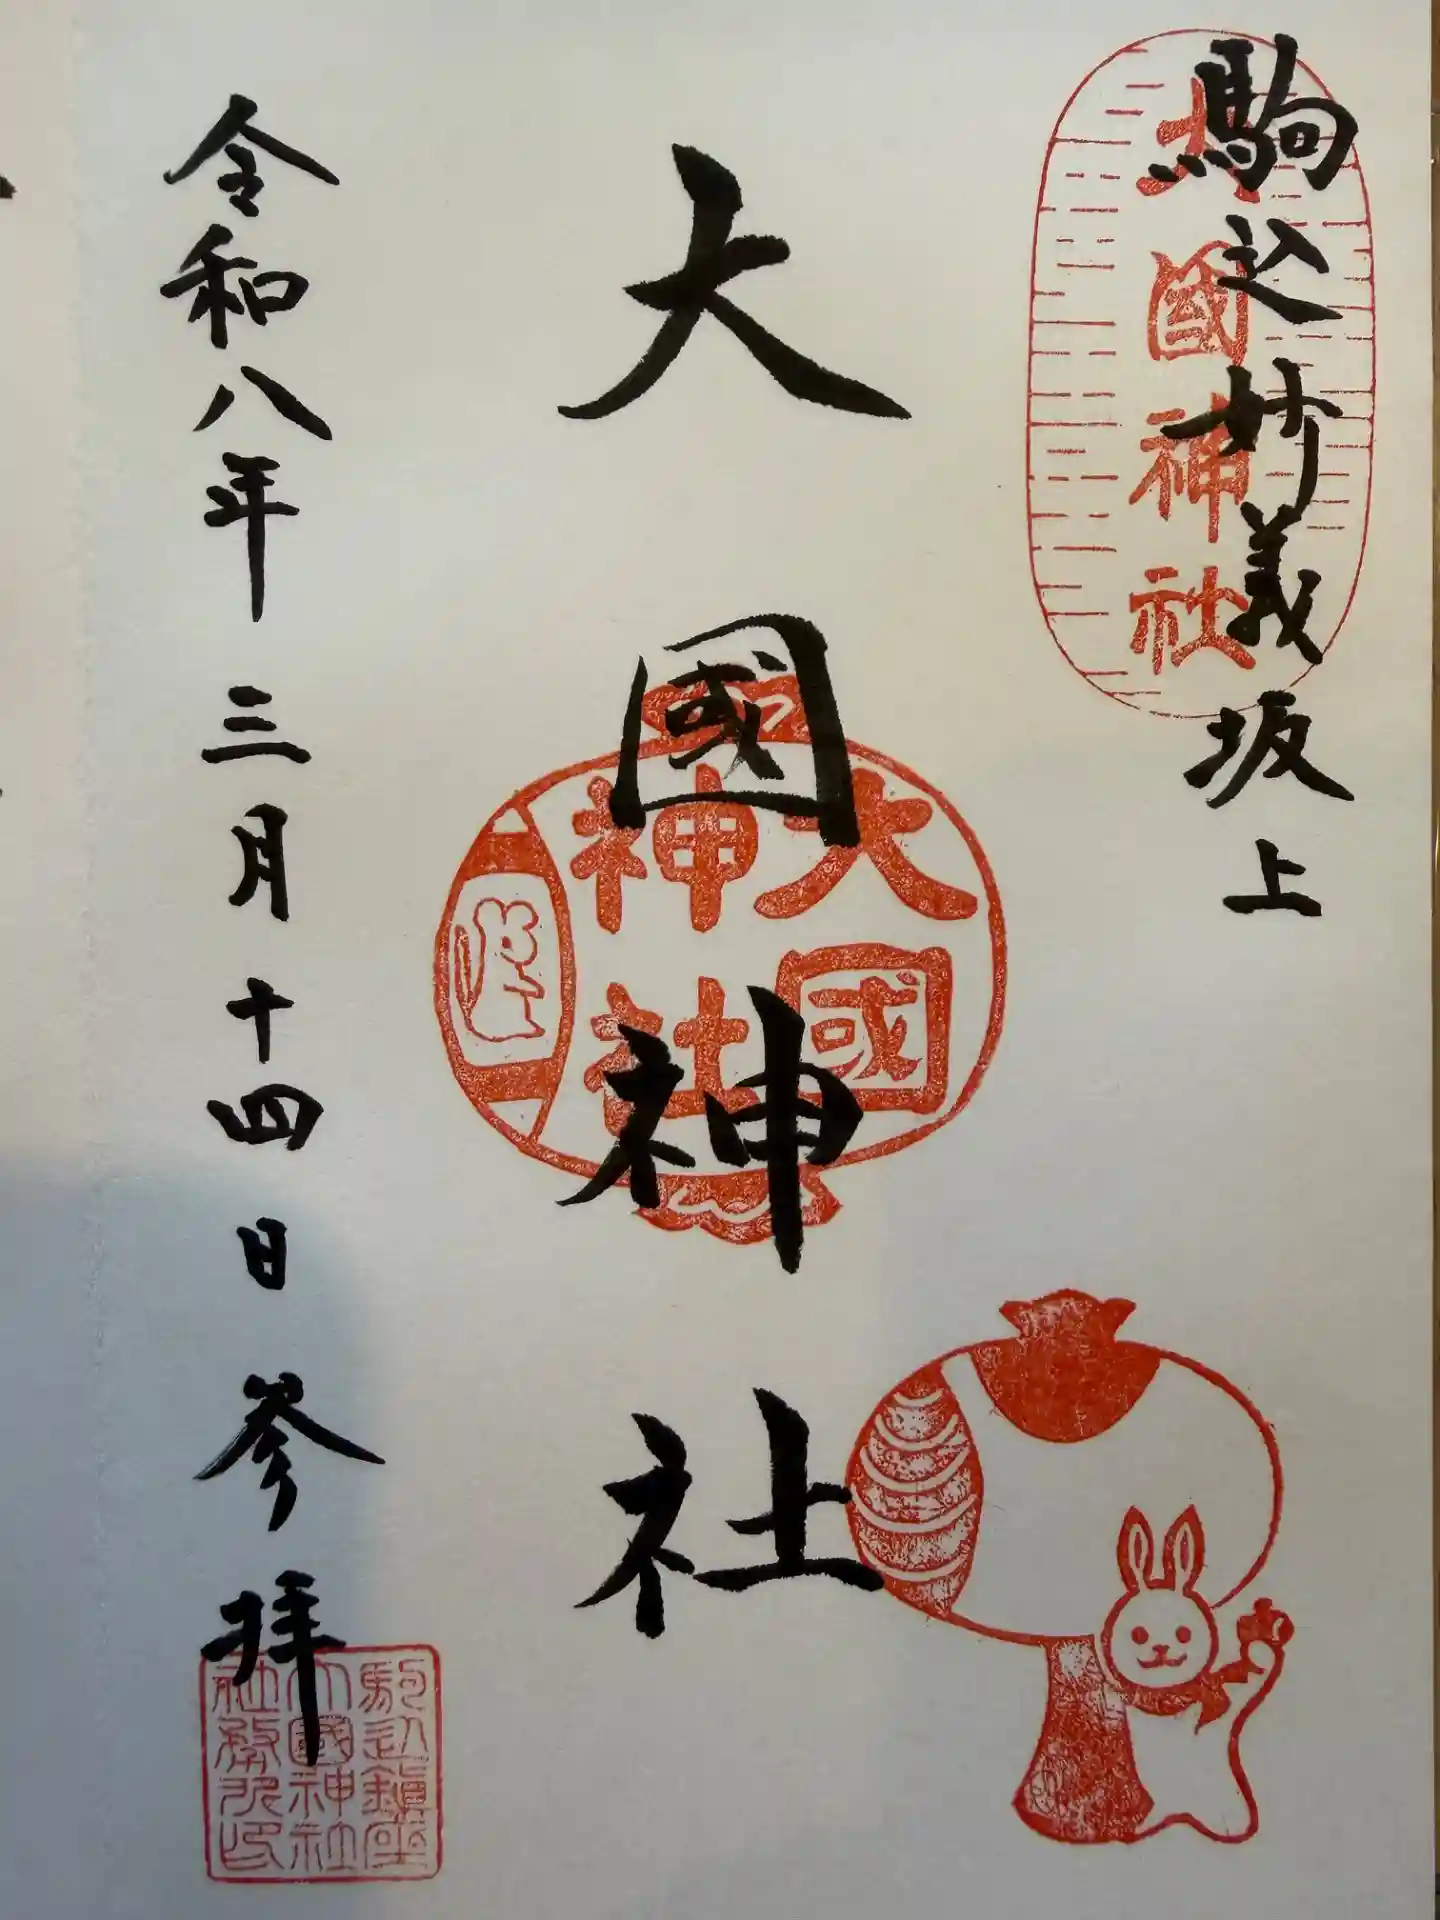 駒込妙義坂上
大國神社
大國神社
大國
神社
令和八年三月十四日参拝
駒込鎮座
大國神社
社務所印